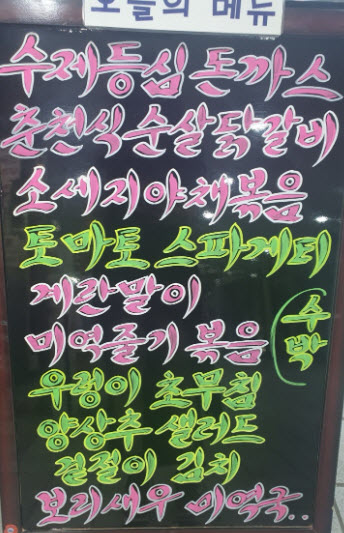 오늘의 메뉴
수제등심 돈까스
춘천식 순살닭갈비
소세지야채볶음
토마토 스파게티
계란말이
미역줄기 볶음
수박
우렁이 초무침
양상추 샐러드
겉절이 김치
보리새우 미역국..